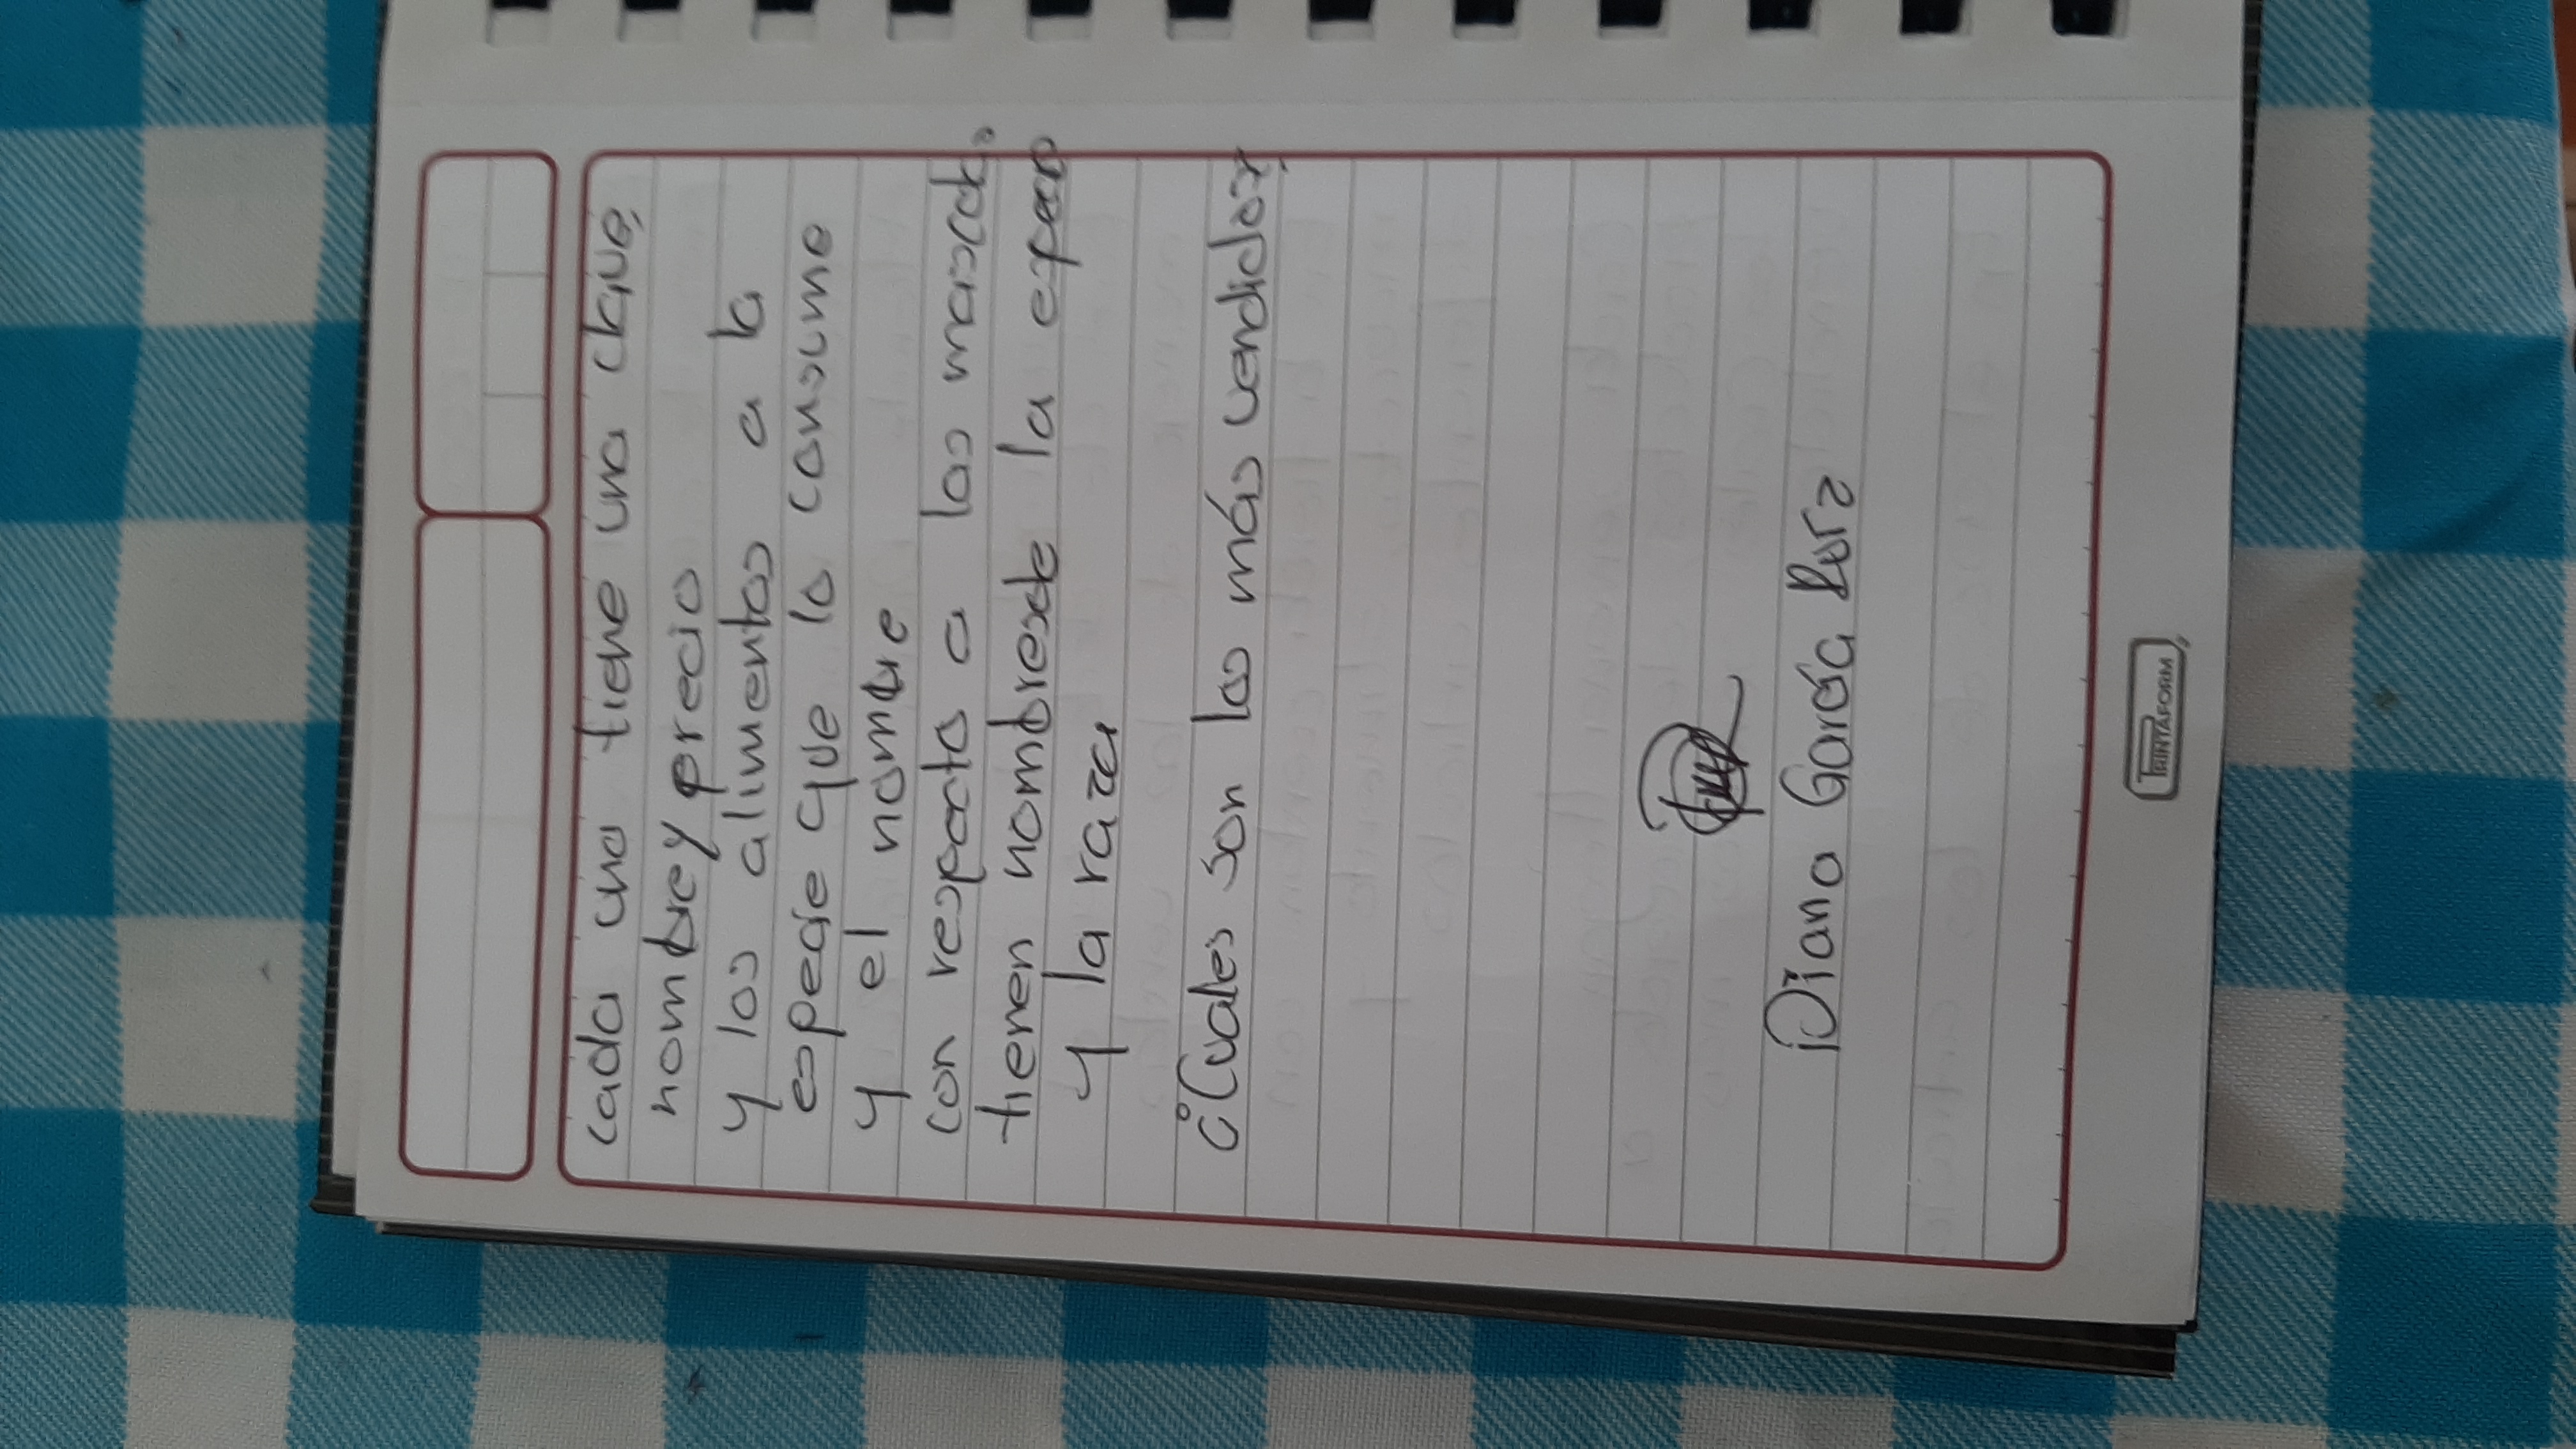 cada uno tiene una clave,
nombre y precio
y los alimentos a la
especie que lo consume
y el nombre
con respecto a las mascotas
tienen nombres de la especie
y la raza
¿Cuales son los más vendidos?
Diana García Ruíz
PRINTAFORM